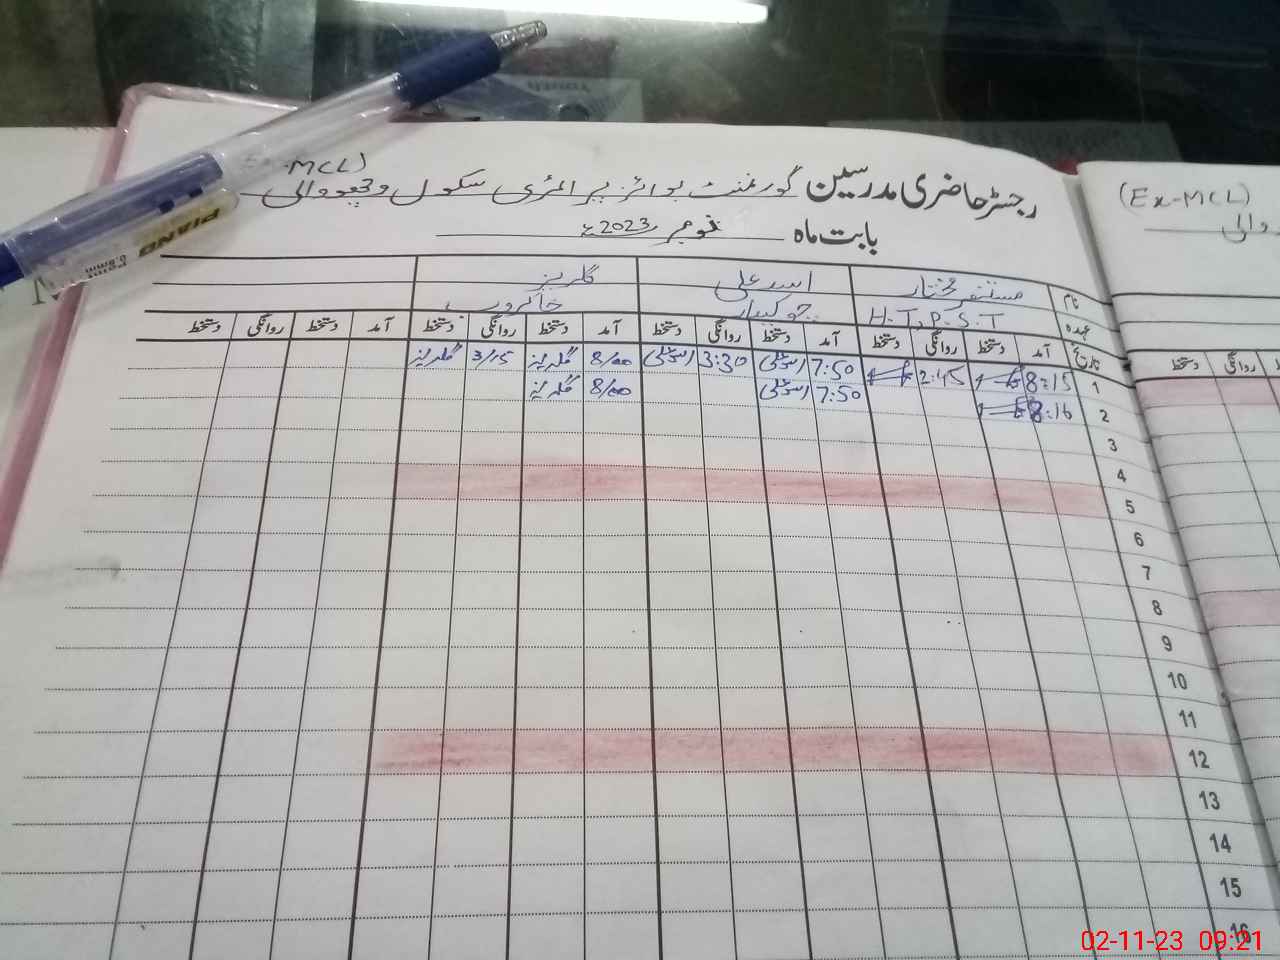 (Ex-MCL)
رجسٹر حاضری مدرسین گورنمنٹ بوائز پرائمری سکول وچھووالی
بابت ماہ نومبر 2023ء
نام مستنصر مختار اسد علی گلریز
عہدہ H.T, P.S.T چوکیدار خاکروب
تاریخ آمد دستخط روانگی دستخط آمد دستخط روانگی دستخط آمد دستخط روانگی دستخط آمد دستخط روانگی دستخط
1 8:15 2:45 7:50 اسد علی 3:30 اسد علی 8/00 گلریز 3/15 گلریز
2 8:16 7:50 اسد علی 8/00 گلریز
3
4
5
6
7
8
9
10
11
12
13
14
15
16
(Ex-MCL)
والی
روانگی دستخط
PIANO
Point
0.8mm
02-11-23 09:21